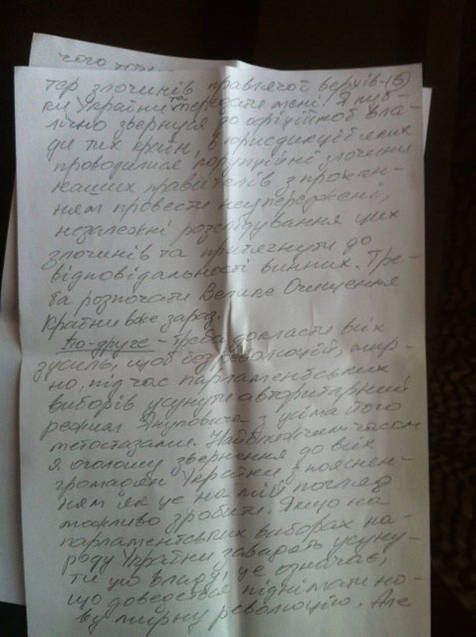 чого
тер злочинів правлячої верхів- (6)
ки України та передати мені. Я пуб-
лічно звернуся до офіційної вла-
ди тих країн, в юрисдикції яких
проводилися корупційні злочини
наших правителів з прохан-
ням провести неупереджені,
незалежні розслідування цих
злочинів та притягнути до
відповідальності винних. Тре-
ба розпочати Велике Очищення
Країни вже зараз.
По-друге - треба докласти всіх
зусиль, щоб без революцій, мир-
но, під час парламентських
виборів усунути авторитарний
режим Януковича з усіма його
метостазами. Найближчим часом
я оголошу звернення до всіх
громадян України з пояснен-
ням як це на мій погляд
можливо зробити. Якщо на
парламентських виборах на-
роду України завадять усуну-
ти цю владу, це означає,
що доведеться піднімати но-
ву мирну революцію. Але